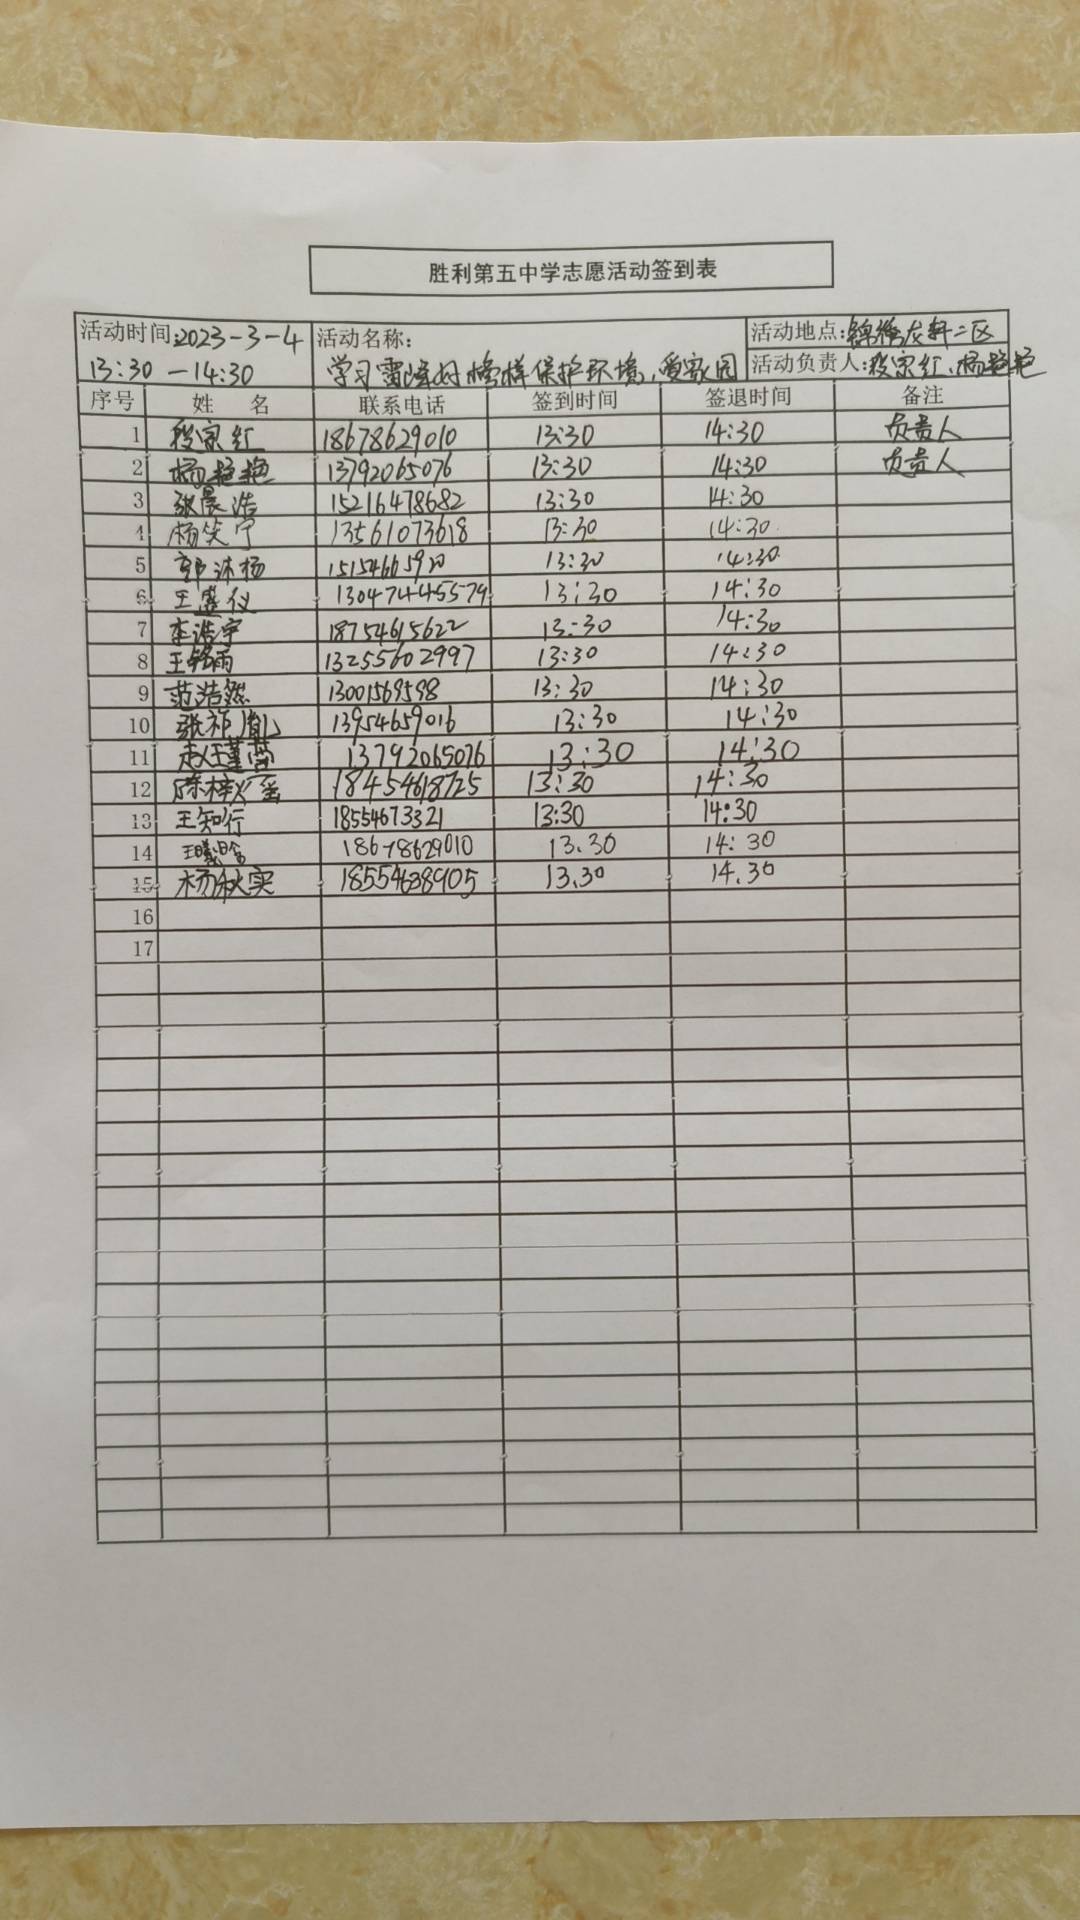 胜利第五中学志愿活动签到表
活动时间:2023-3-4 13:30-14:30
活动名称: 学习雷锋好榜样保护环境,爱家园
活动地点:锦绣龙轩二区
活动负责人:段宗红、杨艳艳
序号 姓 名 联系电话 签到时间 签退时间 备注
1 段宗红 18678629010 13:30 14:30 负责人
2 杨艳艳 13792065076 13:30 14:30 负责人
3 张晨浩 15216478682 13:30 14:30
4 杨笑宁 13561073618 13:30 14:30
5 郭沐杨 13:30 14:30
6 王盛仪 13047445579 13:30 14:30
7 李浩宇 18754615622 13:30 14:30
8 王铭雨 13255602997 13:30 14:30
9 范浩然 13001569598 13:30 14:30
10 张祚胤 13954659016 13:30 14:30
11 13792065076 13:30 14:30
12 18454618725 13:30 14:30
13 王知行 18554673321 13:30 14:30
14 18678629010 13.30 14:30
15 杨秋实 18554638905 13.30 14.30
16
17